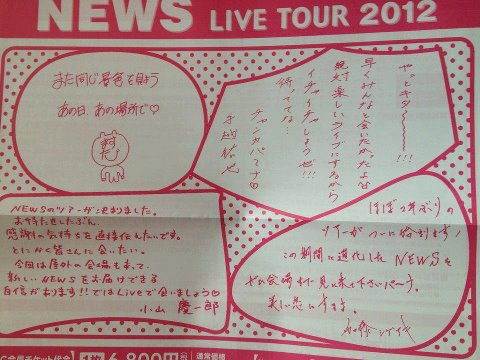 NEWS LIVE TOUR 2012
また同じ景色を見よう
あの日、あの場所で♡
やっとキター〜〜〜!!!
早くみんなと会いたかったよぉ
絶対楽しいライブにするから
イチャイチャしようぜ!!!
待っててな…
チャンカパーナ♡
手越祐也
NEWSのツアーが決まりました。
お待たせしたぶん、
感謝の気持ちを直接伝えたいです。
とにかく皆さんに会いたい。
今回は屋外の会場もあって、
新しいNEWSをお届けできる
自信があります!!ではLiveで会いましょう♡
小山 慶一郎
ほぼ2年ぶりの
ツアーがついに始まります!
この期間に進化したNEWSを
ぜひ会場まで見に来て下さい
楽しみにしてます。
加藤シゲアキ
6,800円
通常価格